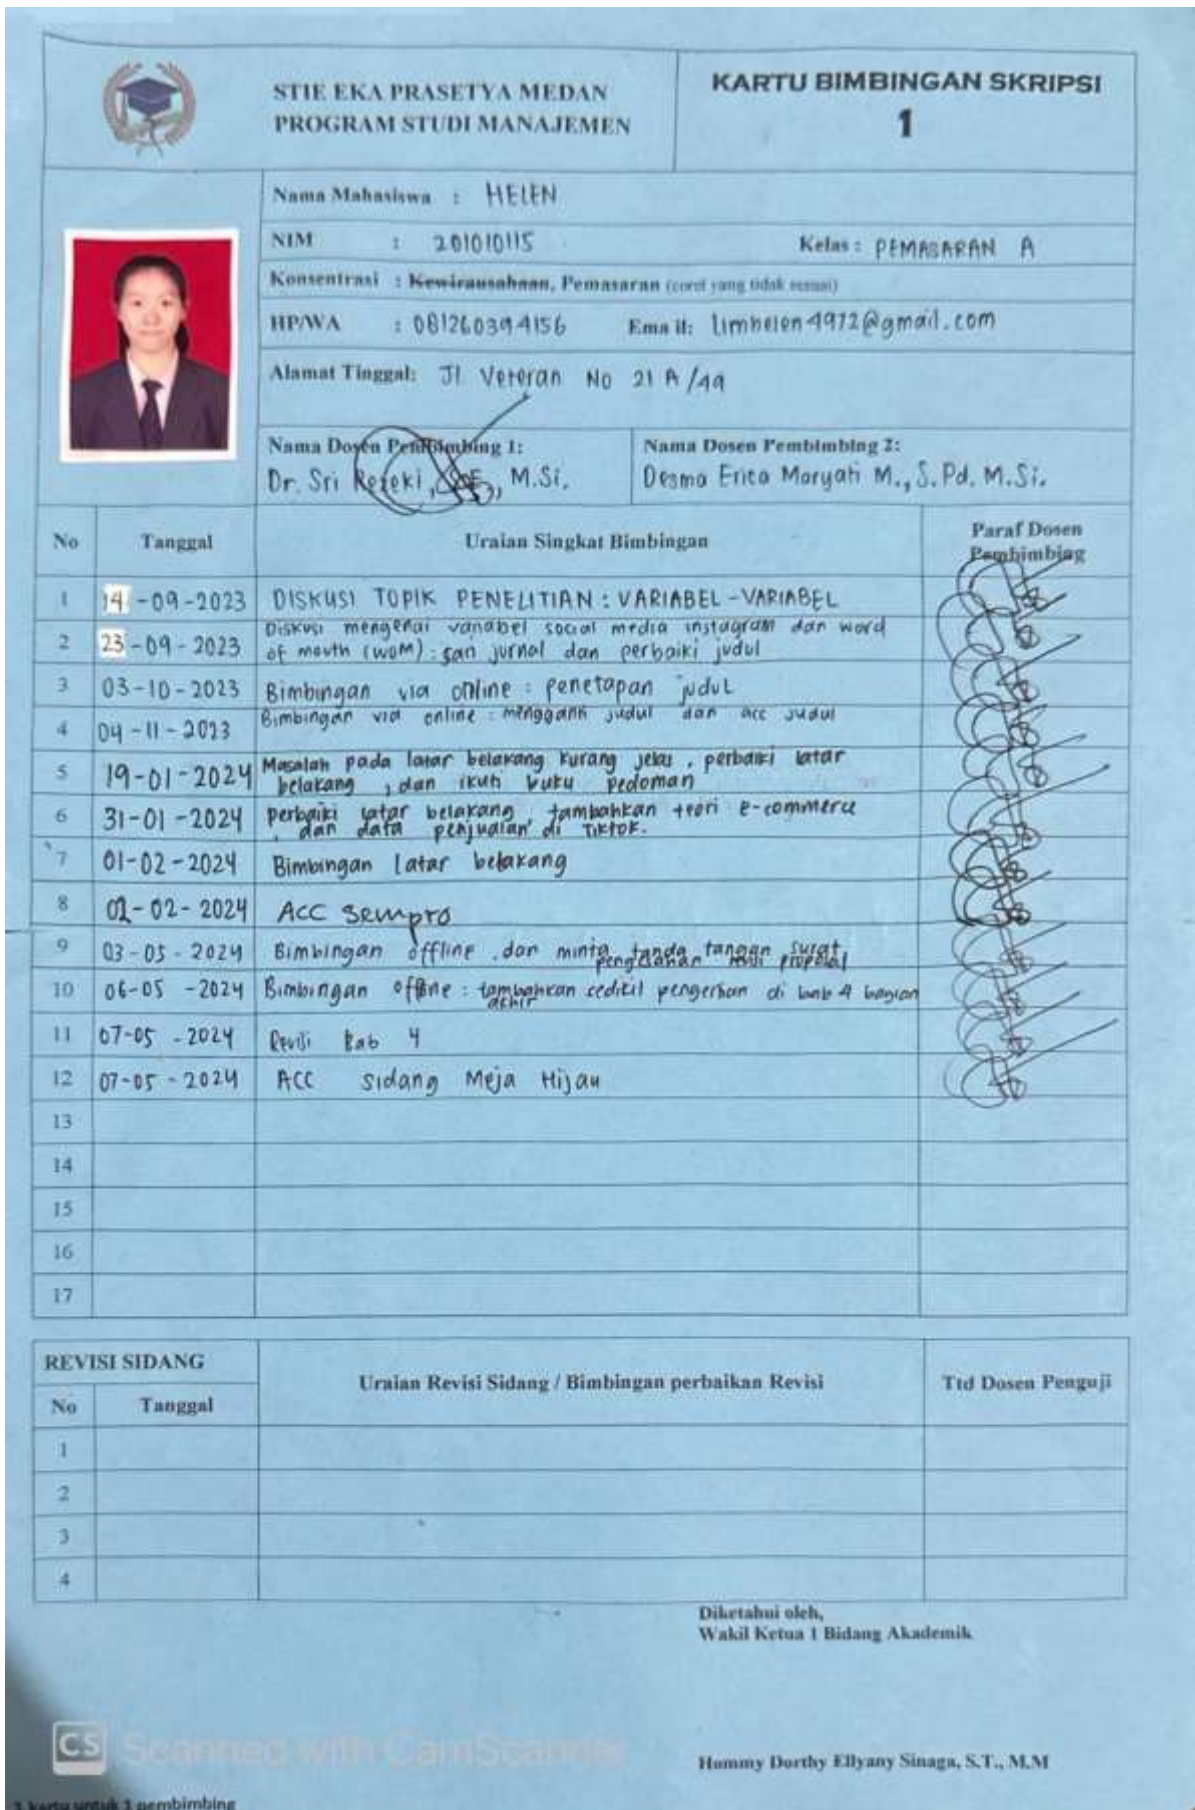 STIE EKA PRASETYA MEDAN
PROGRAM STUDI MANAJEMEN
KARTU BIMBINGAN SKRIPSI
1
Nama Mahasiswa : HELEN
NIM : 201010115 Kelas : PEMASARAN A
Konsentrasi : Kewirausahaan, Pemasaran (coret yang tidak sesuai)
HP/WA : 081260394156 Email: limhelen4972@gmail.com
Alamat Tinggal: Jl. Veteran No 21 A/49
Nama Dosen Pembimbing 1:
Dr. Sri Rezeki, SE, M.Si.
Nama Dosen Pembimbing 2:
Desma Erica Maryati M., S.Pd. M.Si.
No Tanggal Uraian Singkat Bimbingan Paraf Dosen
Pembimbing
1 14-09-2023 DISKUSI TOPIK PENELITIAN : VARIABEL-VARIABEL
2 23-09-2023 Diskusi mengenai variabel social media instagram dan word
of mouth (WOM) : cari jurnal dan perbaiki judul
3 03-10-2023 Bimbingan via online : penetapan judul
4 04-11-2023 Bimbingan via online : mengganti judul dan acc judul
5 19-01-2024 Masalah pada latar belakang kurang jelas, perbaiki latar
belakang, dan ikuti buku pedoman
6 31-01-2024 perbaiki latar belakang, tambahkan teori e-commerce
dan data penjualan di TikTok.
7 01-02-2024 Bimbingan latar belakang
8 02-02-2024 ACC Sempro
9 03-05-2024 Bimbingan offline, dan minta tanda tangan surat
pengesahan proposal
10 06-05-2024 Bimbingan offline : tambahkan sedikit pengertian di bab 4 bagian
akhir
11 07-05-2024 Revisi Bab 4
12 07-05-2024 ACC Sidang Meja Hijau
13
14
15
16
17
REVISI SIDANG
No Tanggal
Uraian Revisi Sidang / Bimbingan perbaikan Revisi
Ttd Dosen Penguji
1
2
3
4
Diketahui oleh,
Wakil Ketua 1 Bidang Akademik
CS Scanned with CamScanner
Hommy Dorthy Ellyany Sinaga, S.T., M.M
1 kartu untuk 1 pembimbing